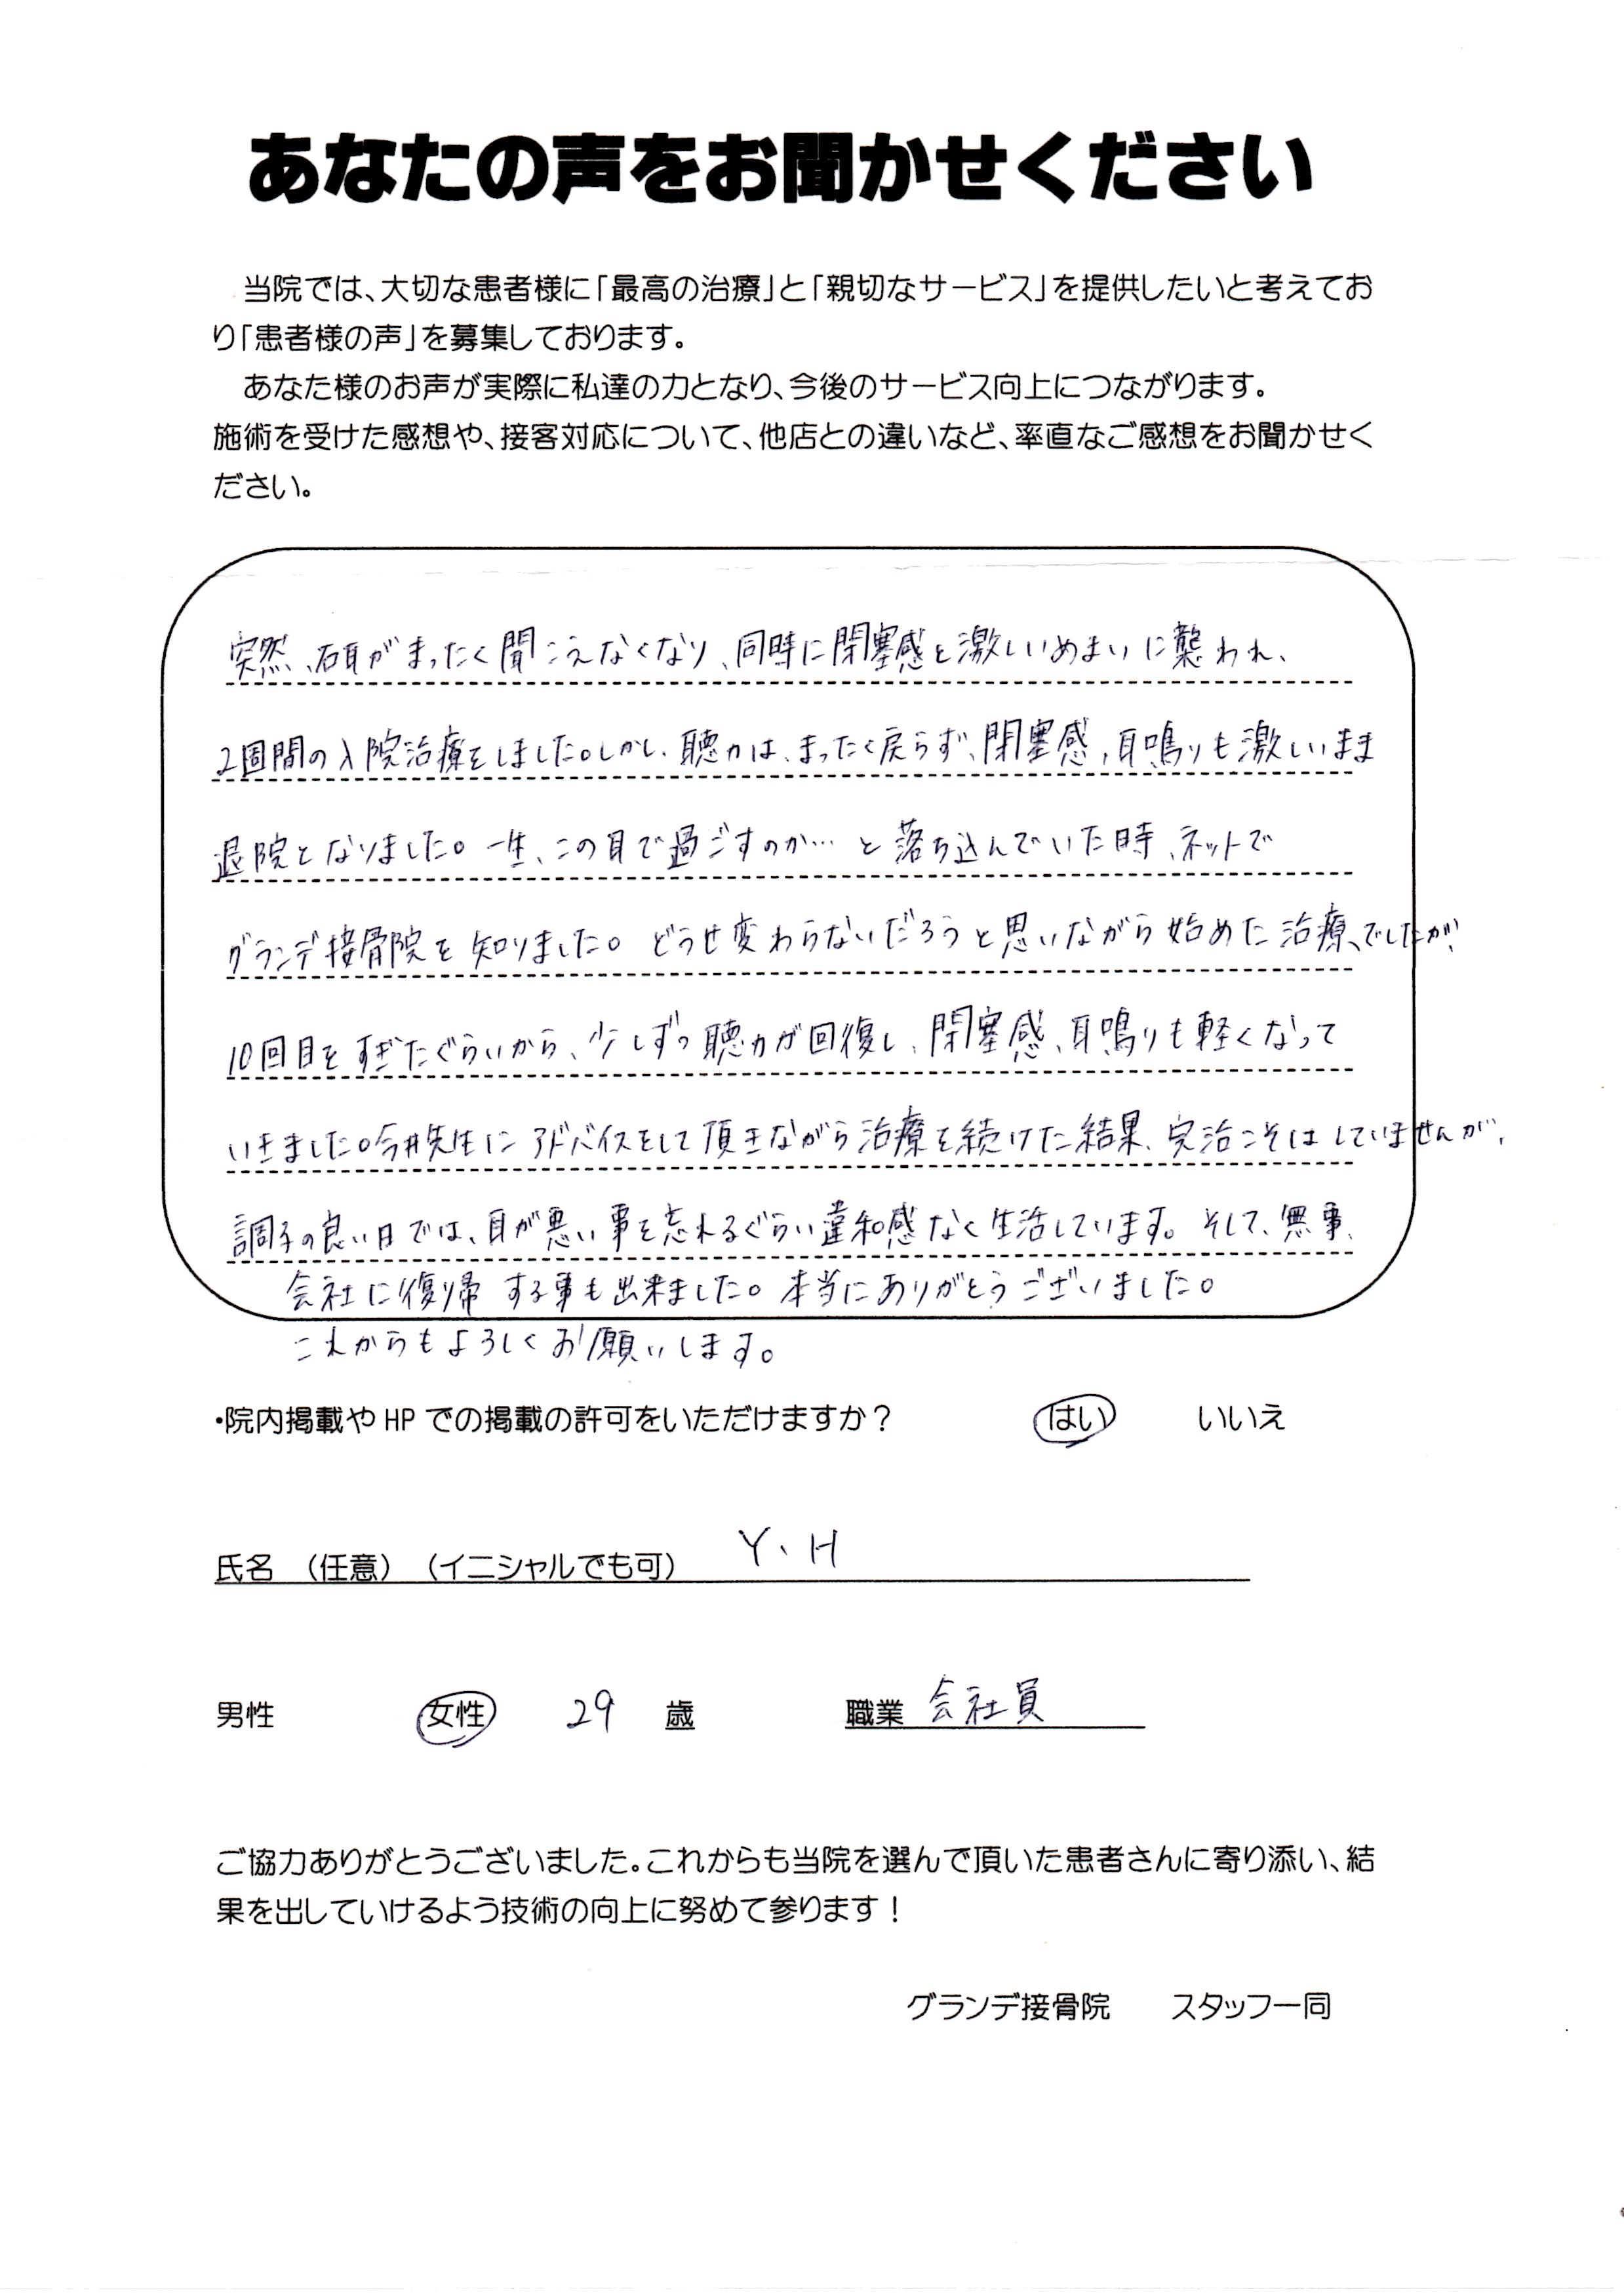 あなたの声をお聞かせください
当院では、大切な患者様に「最高の治療」と「親切なサービス」を提供したいと考えてお
り「患者様の声」を募集しております。
あなた様のお声が実際に私達の力となり、今後のサービス向上につながります。
施術を受けた感想や、接客対応について、他店との違いなど、率直なご感想をお聞かせく
ださい。
突然、右耳がまったく聞こえなくなり、同時に閉塞感と激しいめまいに襲われ、
2週間の入院治療をしました。しかし、聴力は、まったく戻らず、閉塞感、耳鳴りも激しいまま
退院となりました。一生、この耳で過ごすのか…と落ち込んでいた時、ネットで
グランデ接骨院を知りました。どうせ変わらないだろうと思いながら始めた治療、でしたが、
10回目をすぎたぐらいから、少しずつ聴力が回復し、閉塞感、耳鳴りも軽くなって
いきました。今井先生にアドバイスをして頂きながら治療を続けた結果、完治こそはしていませんが、
調子の良い日では、耳が悪い事を忘れるぐらい違和感なく生活しています。そして、無事、
会社に復帰する事も出来ました。本当にありがとうございました。
これからもよろしくお願いします。
・院内掲載やHPでの掲載の許可をいただけますか？ はい いいえ
氏名 （任意）（イニシャルでも可） Y、H
男性 女性 29 歳 職業 会社員
ご協力ありがとうございました。これからも当院を選んで頂いた患者さんに寄り添い、結
果を出していけるよう技術の向上に努めて参ります！
グランデ接骨院 スタッフ一同